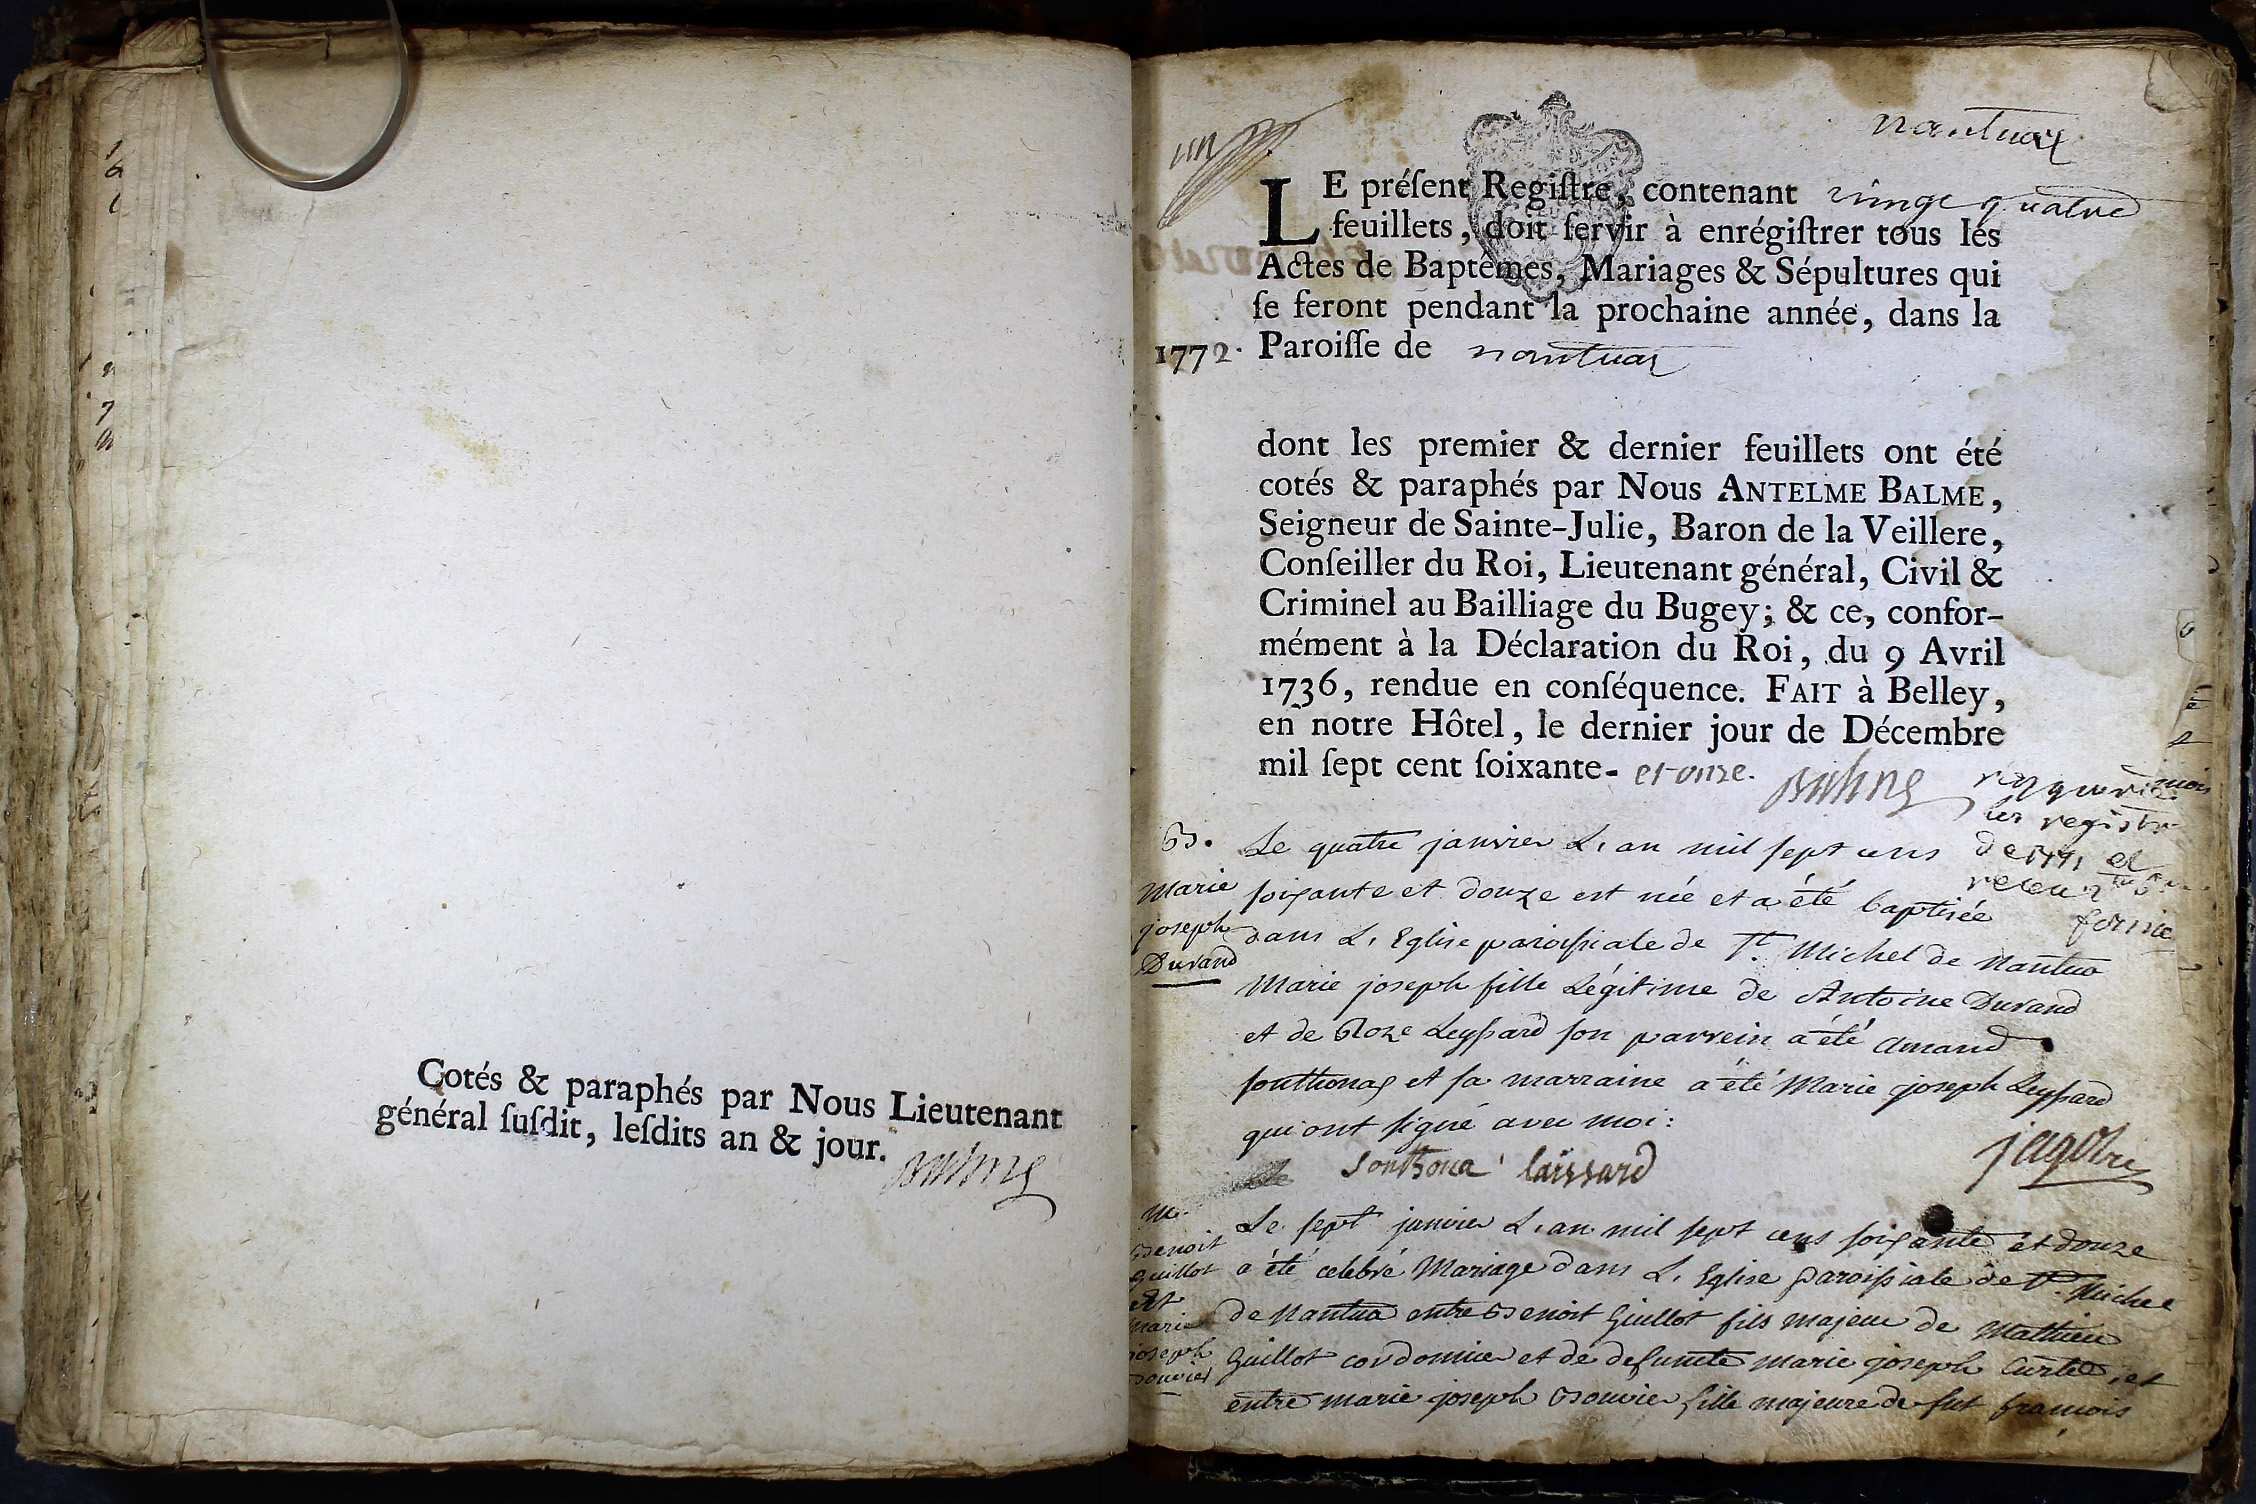 Cotés & paraphés par Nous Lieutenant
général ſuſdit, leſdits an & jour.
Balme
nantuax
un
LE préſent Regiſtre, contenant vingt quatre
feuillets, doit ſervir à enrégiſtrer tous les
Actes de Baptêmes, Mariages & Sépultures qui
ſe feront pendant la prochaine année, dans la
1772. Paroiſſe de nantuax
dont les premier & dernier feuillets ont été
cotés & paraphés par Nous ANTELME BALME,
Seigneur de Sainte-Julie, Baron de la Veillere,
Conſeiller du Roi, Lieutenant général, Civil &
Criminel au Bailliage du Bugey; & ce, confor-
mément à la Déclaration du Roi, du 9 Avril
1736, rendue en conſéquence. FAIT à Belley,
en notre Hôtel, le dernier jour de Décembre
mil ſept cent ſoixante- et onze. Balme
registre
B.
Marie
joseph
Durand
Le quatre janvier L'an mil sept cens
soixante et douze est née et a été baptisée
dans L'Eglise paroissiale de St. Michel de Nantua
Marie joseph fille Légitime de Antoine Durand
et de Roze Leyssard son parrein a été Amand
sonthonax et sa marraine a été Marie joseph Leyssard
qui ont signé avec moi:
Sonthona laissard
M.
Benoit
Guillot
et
Marie
joseph
Bouvier
Le sept janvier L'an mil sept cens soixante et douze
a été celebré Mariage dans L'Eglise paroissiale de St. Michel
de Nantua entre Benoit Guillot fils majeur de Mathieu
Guillot cordonnier et de defunte Marie joseph Curtet, et
entre marie joseph Bouvier fille majeure de fut francois